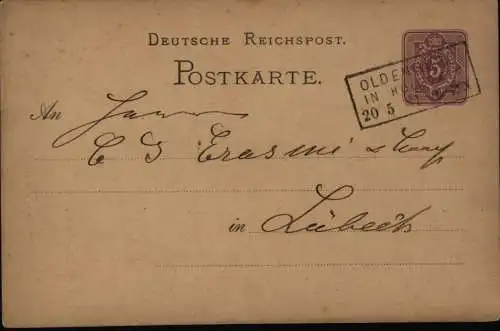 DEUTSCHE REICHSPOST.
POSTKARTE.
5
OLDEN
IN H
20 5
An Herrn
C J Erasmi & Comp
in Lübeck